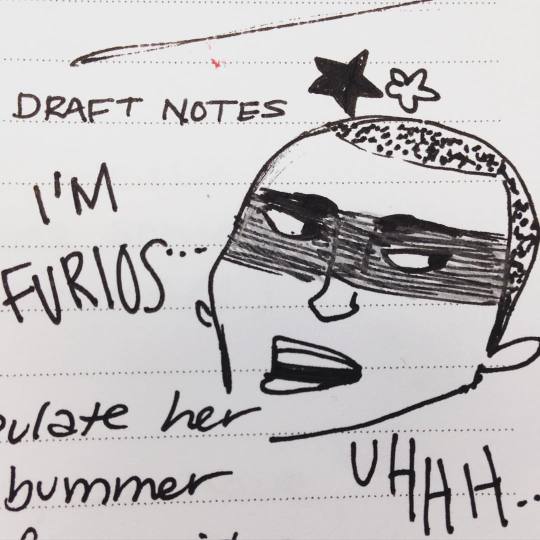 DRAFT NOTES
I'M
FURIOS...
her
bummer
UHHH..